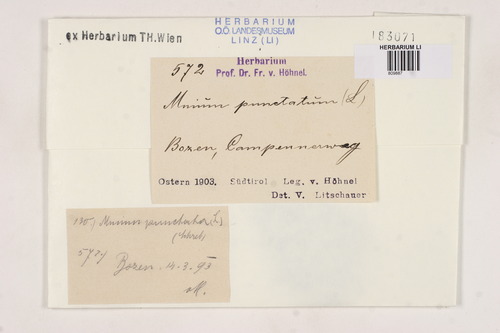 HERBARIUM
O.Ö. LANDESMUSEUM
LINZ (LI)
ex Herbarium TH.Wien
183071
HERBARIUM LI
572
Herbarium
Prof. Dr. Fr. v. Höhnel.
Mnium punctatum (L)
Bozen, Campennerweg
Ostern 1903. Südtirol Leg. v. Höhnel
Det. V. Litschauer
Mnium punctatum (L.)
572
Bozen 14.3.93